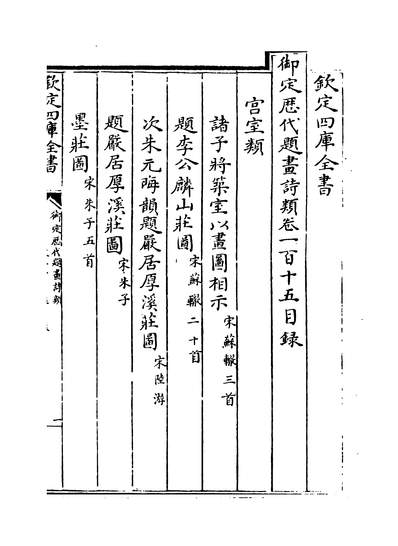 欽定四庫全書
御定歴代題畫詩類卷一百十五目錄
宫室類
諸子將築室以畫圖相示宋蘇轍三首
題李公麟山莊圖宋蘇轍二十首
次朱元晦韻題嚴居厚溪莊圖宋陸游
題嚴居厚溪莊圖宋朱子
墨莊圖宋朱子五首
欽定四庫全書
御定歴代題畫詩類
一